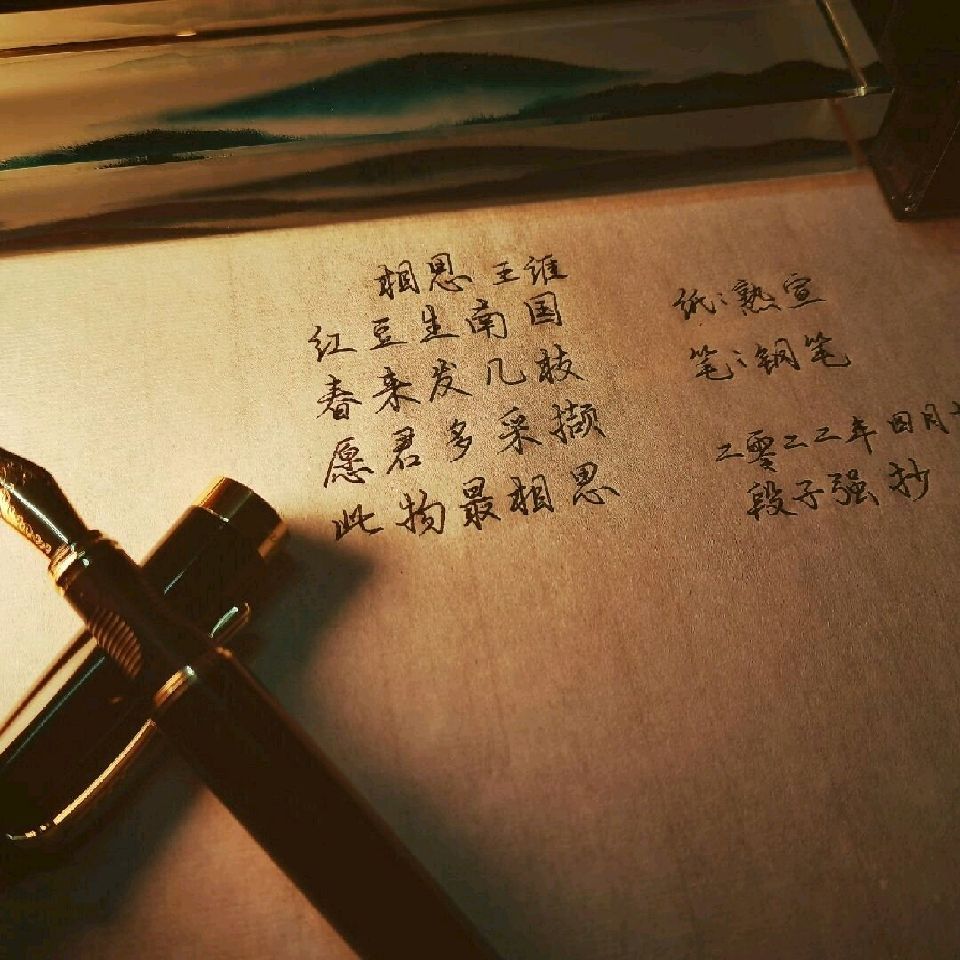 相思 王维
红豆生南国
春来发几枝
愿君多采撷
此物最相思
纸:熟宣
笔:钢笔
二零二二年四月
段子强抄